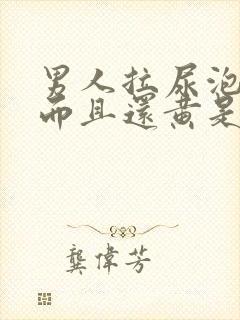 男人拉尿泡
而且還黄是
龔偉芳